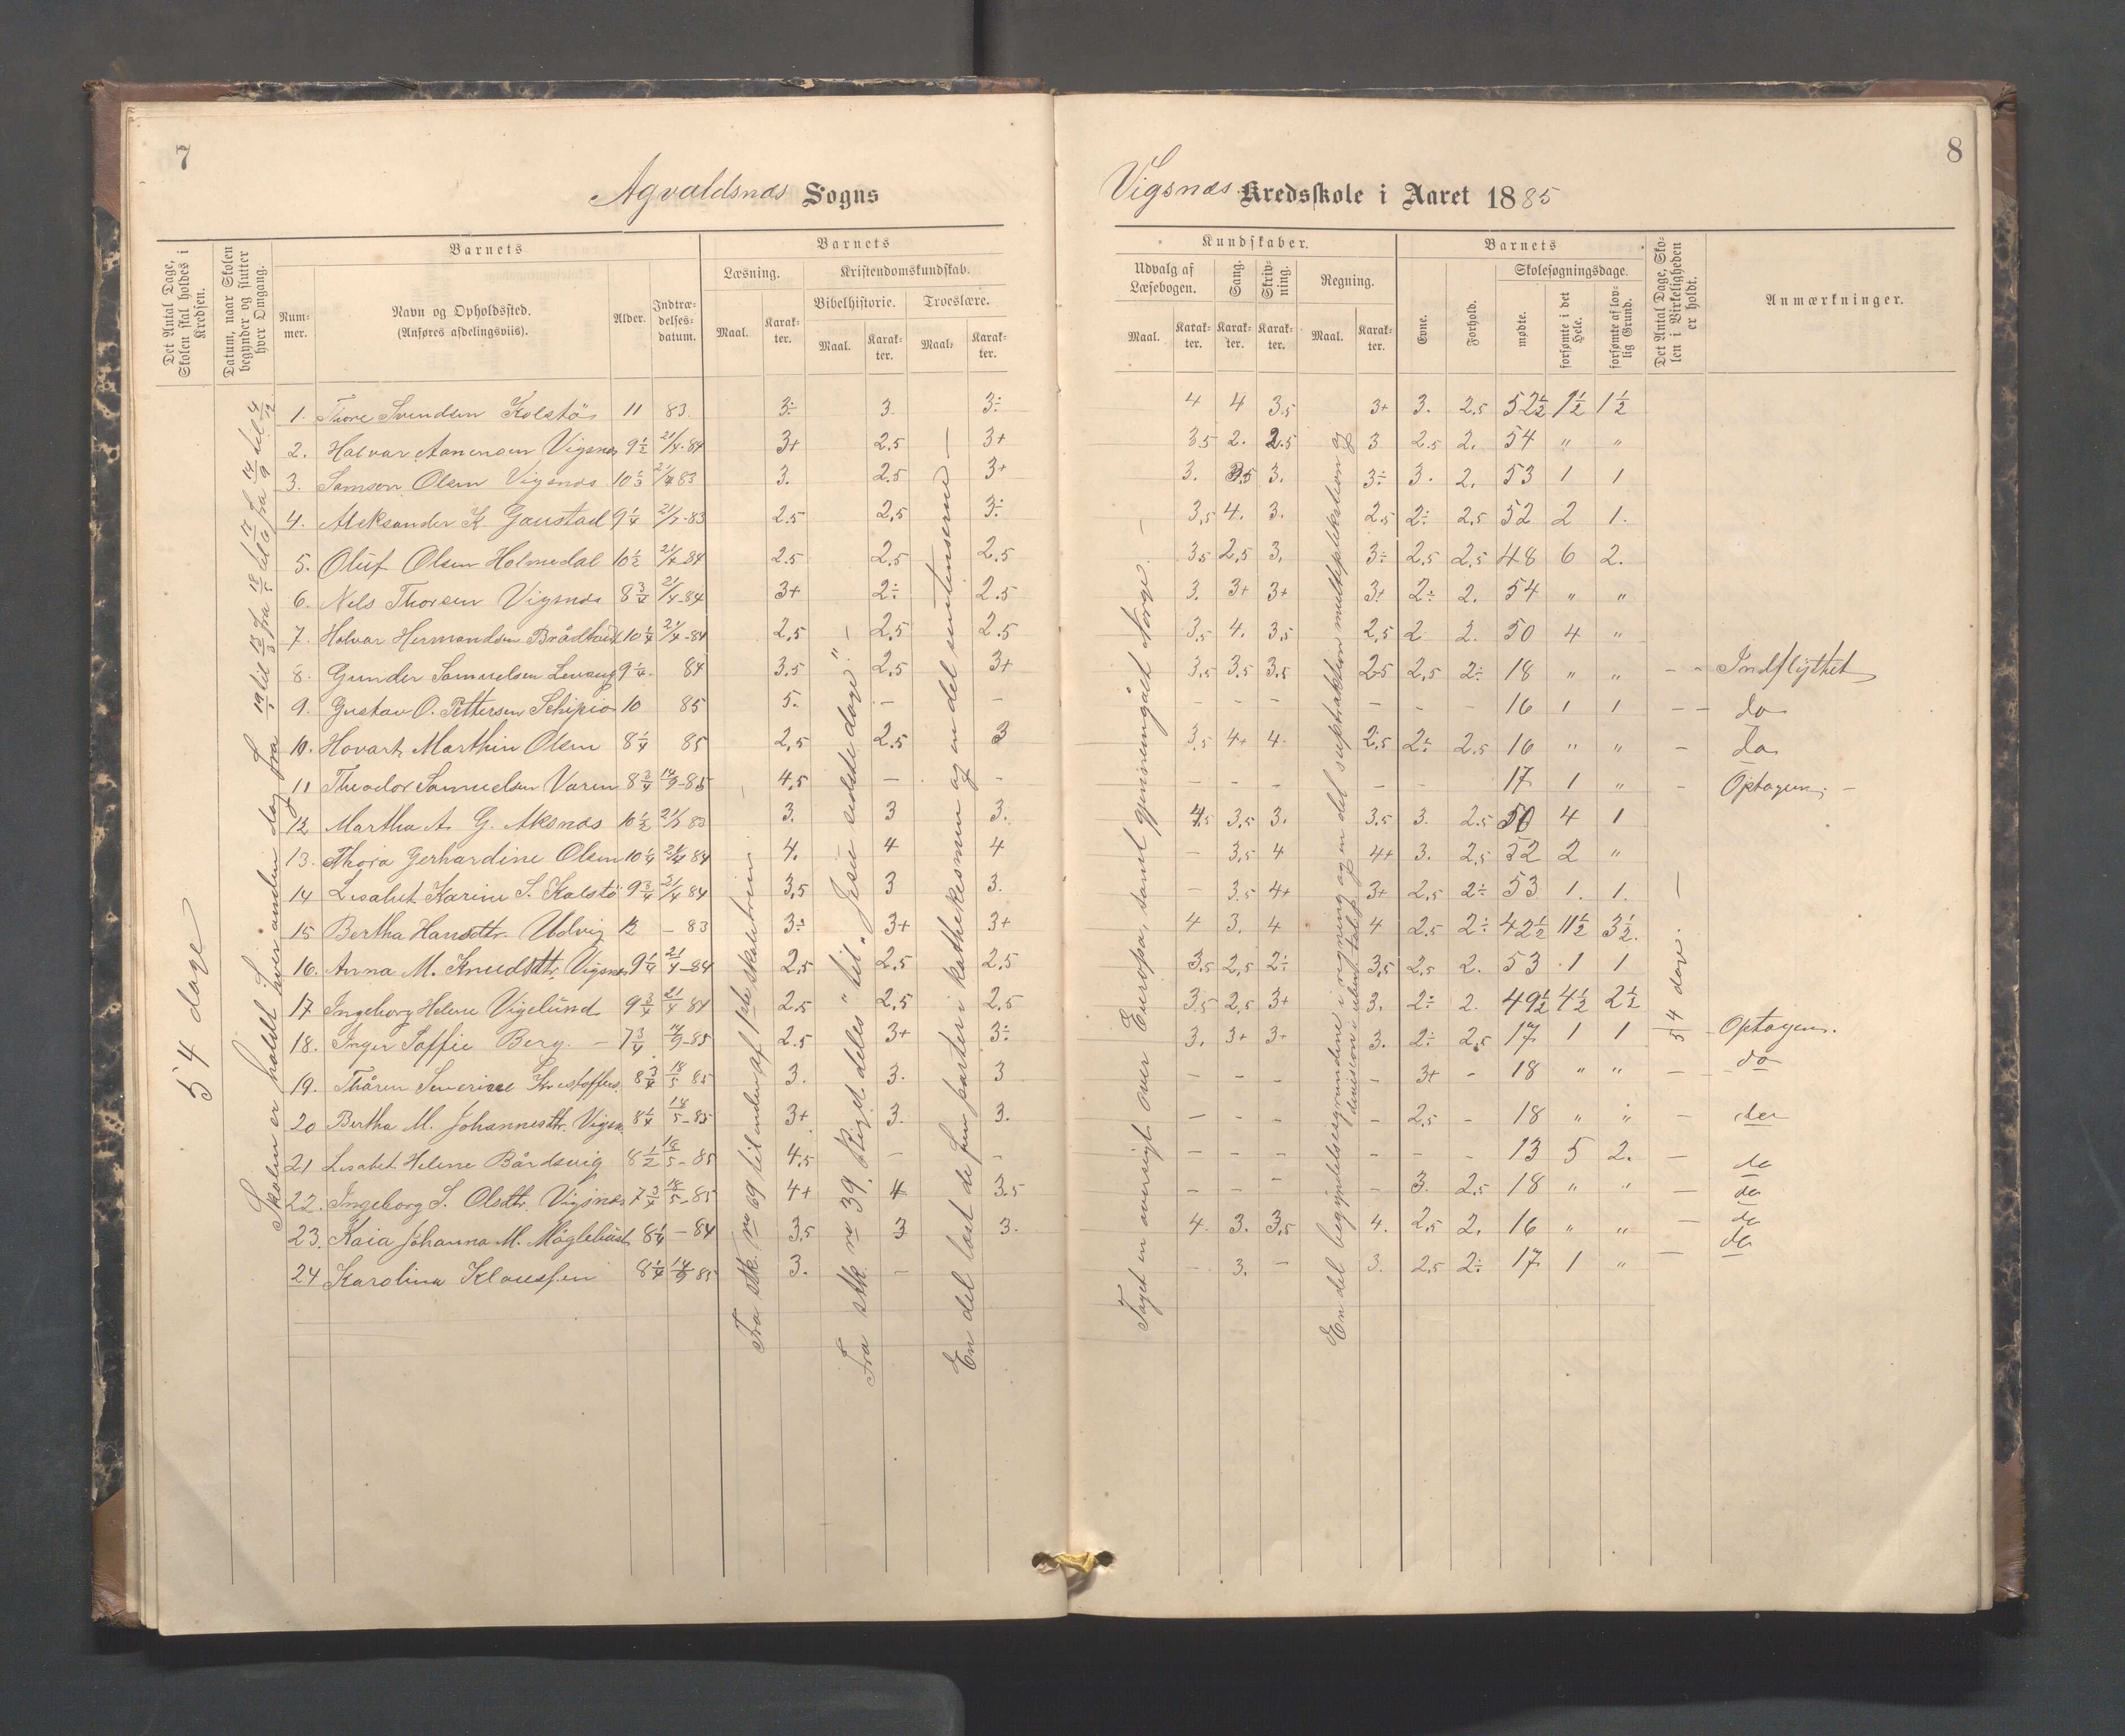 7
Agvaldsnæs Sogns
Det Antal Dage, Skolen skal holdes i Kredsen.
Datum, naar Skolen begynder og slutter hver Omgang.
Barnets
Nummer.
Navn og Opholdssted.
(Anføres afdelingsviis).
Alder.
Indtrædelsesdatum.
Barnets
Læsning.
Maal.
Karakter.
Kristendomskundskab.
Bibelhistorie.
Maal.
Karakter.
Troeslære.
Maal.
Karakter.
54 dage
Skolen er holdt hver anden dag fra 19/1 til 13/3 fra 18/5 til 17/6 fra 14/9 til 4/12
1. Thore Svendsen Kolstö 11 83. 3÷ 3. 3÷
2. Halvar Aanensen Vigsnæs 9 1/2 21/4-84 3+ 2.5 3+
3. Samson Olsen Vigsnæs 10 1/3 21/4 83 3. 2.5 3+
4. Aleksander K. Gaustad 9 1/4 21/7-83 2.5 2,5 3÷
5. Oluf Olsen Holmedal 10 1/2 21/4-84 2.5 2,5 2.5
6. Nils Thorsen Vigsnæs 8 3/4 21/4-84 3+ 2÷ 2.5
7. Halvar Hermandsen 10 1/4 21/4-84 2,5 2,5 2.5
8. Gunder Samuelsen Levang 9 1/4 84 3.5 2,5 3+
9. Gustav O. Pettersen Schipio 10 85 5. – –
10. Hovart Marthin Olsen 8 1/4 85 2,5 2.5 3
11 Theodor Samuelsen Varen 8 3/4 14/9-85 4,5 – –
12 Martha A. G. Aksnæs 10 1/2 21/7 83 3. 3 3.
13. Thora Gerhardine Olsen 10 1/4 21/4 84 4. 4 4
14 Lisabet Karine S. Kolstö 9 3/4 21/4 84 3,5 3 3.
15 Bertha Hansdtr. Udvig 12 – 83 3÷ 3+ 3+
16. Anna M. Knudsdtr. Vigsnæs 9 1/4 21/4-84 2,5 2,5 2,5
17 Ingeborg Helene Vigelund 9 3/4 21/4 84 2.5 2,5 2,5
18. Inger Soffie Berg. – 7 3/4 14/9-85 2.5 3+ 3÷
19. Thåren Severine 8 3/4 18/5 85 3. 3. 3
20 Bertha M. Johannesdtr. Vigsn. 8 1/4 18/5-85 3+ 3. 3.
21 Lisabet Helene Bårdsvig 8 1/2 18/5-85 4,5 – –
22. Ingeborg S. Olsdtr. Vigsnæs 7 3/4 18/5-85 4+ 4 3.5
23. Kaia Johanna M. Möglebust 8 1/4 – 84 3,5 3 3.
24 Karolina Klaussen 8 1/4 14/9 85 3. –
Fra stk. no 69 til enden af 1ste skoletrin
Fra stk. no 39. „Rigd. deles“ til „Jesu sidste dage“. –
En del læst de fem parter i kathekesmen og en del sentenserne –
8
Vigsnæs Kredsskole i Aaret 1885
Kundskaber.
Udvalg af Læsebogen.
Maal.
Karakter.
Sang.
Karakter.
Skrivning.
Karakter.
Regning.
Maal.
Karakter.
Barnets
Evne.
Forhold.
Skolesøgningsdage.
mødte.
forsømte i det Hele.
forsømte af lovlig Grund.
Det Antal Dage, Skolen i Virkeligheden er holdt.
Anmærkninger.
Taget en oversigt over Europa, samt gjennemgået Norge. –
En del begyndelsesgrundene i regning og en del suptraktion multipplikation og division i uben. talst.
54 dage. –
4 4 3.5 3+ 3. 2.5 52 1/2 1 1/2 1 1/2
3.5 2. 2.5 3 2.5 2. 54 „ „
3. 3.5 3. 3÷ 3. 2. 53 1 1
3,5 4. 3. 2.5 2÷ 2,5 52 2 1.
3.5 2,5 3. 3÷ 2,5 2,5 48 6 2.
3. 3+ 3+ 3+ 2÷ 2. 54 „ „
3,5 4. 3,5 2,5 2 2. 50 4 „
3,5 3.5 3,5 2.5 2,5 2÷ 18 „ „ – – Indflyttet
– – – – – – 16 1 1 – – do
3,5 4+ 4. 2.5 2÷ 2.5 16 „ „ – do
– – – – – 17 1 „ – Optagen. –
4.5 3,5 3. 3.5 3. 2.5 50 4 1
– 3,5 4 4+ 3. 2,5 52 2 „
– 3.5 4+ 3+ 2,5 2÷ 53 1. 1.
4 3. 4 4 2.5 2÷ 42 1/2 11 1/2 3 1/2.
3,5 2,5 2÷ 3,5 2,5 2. 53 1 1
3,5 2,5 3+ 3. 2÷ 2. 49 1/2 4 1/2 2 1/2
3. 3+ 3+ 3. 2÷ 2,5 17 1 1 Optagen.
– – – – 3+ – 18 „ „ – – do
– – – – 2,5 – 18 „ „ – do
– – – – – – 13 5 2. – do
– – – – 3. 2.5 18 „ „ – do
4. 3. 3,5 4. 2,5 2. 16 „ „ – do
– 3. – 3. 2,5 2÷ 17 1 „ – do